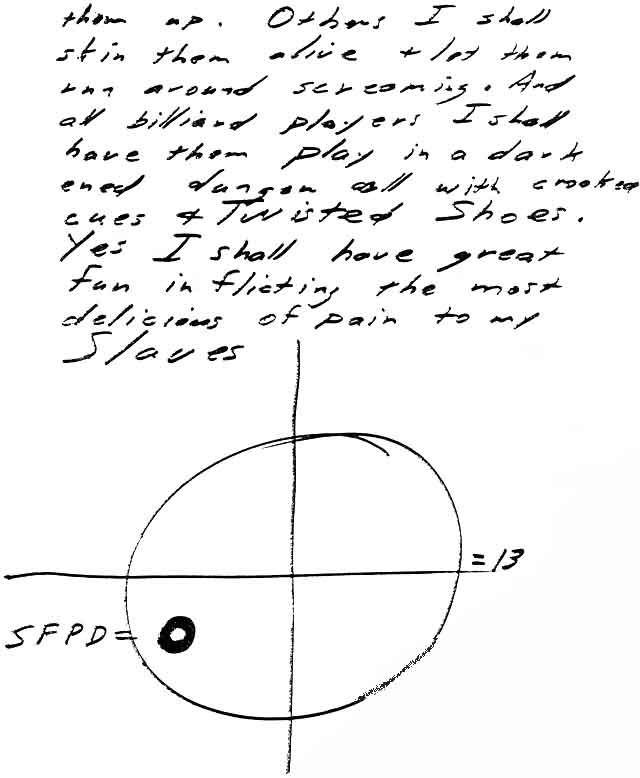 them up. Others I shall
skin them alive + let them
run around screaming. And
all billiard players I shall
have them play in a dark
ened dungen cell with crooked
cues & Twisted Shoes.
Yes I shall have great
fun inflicting the most
delicious of pain to my
Slaves
= 13
SFPD = 0